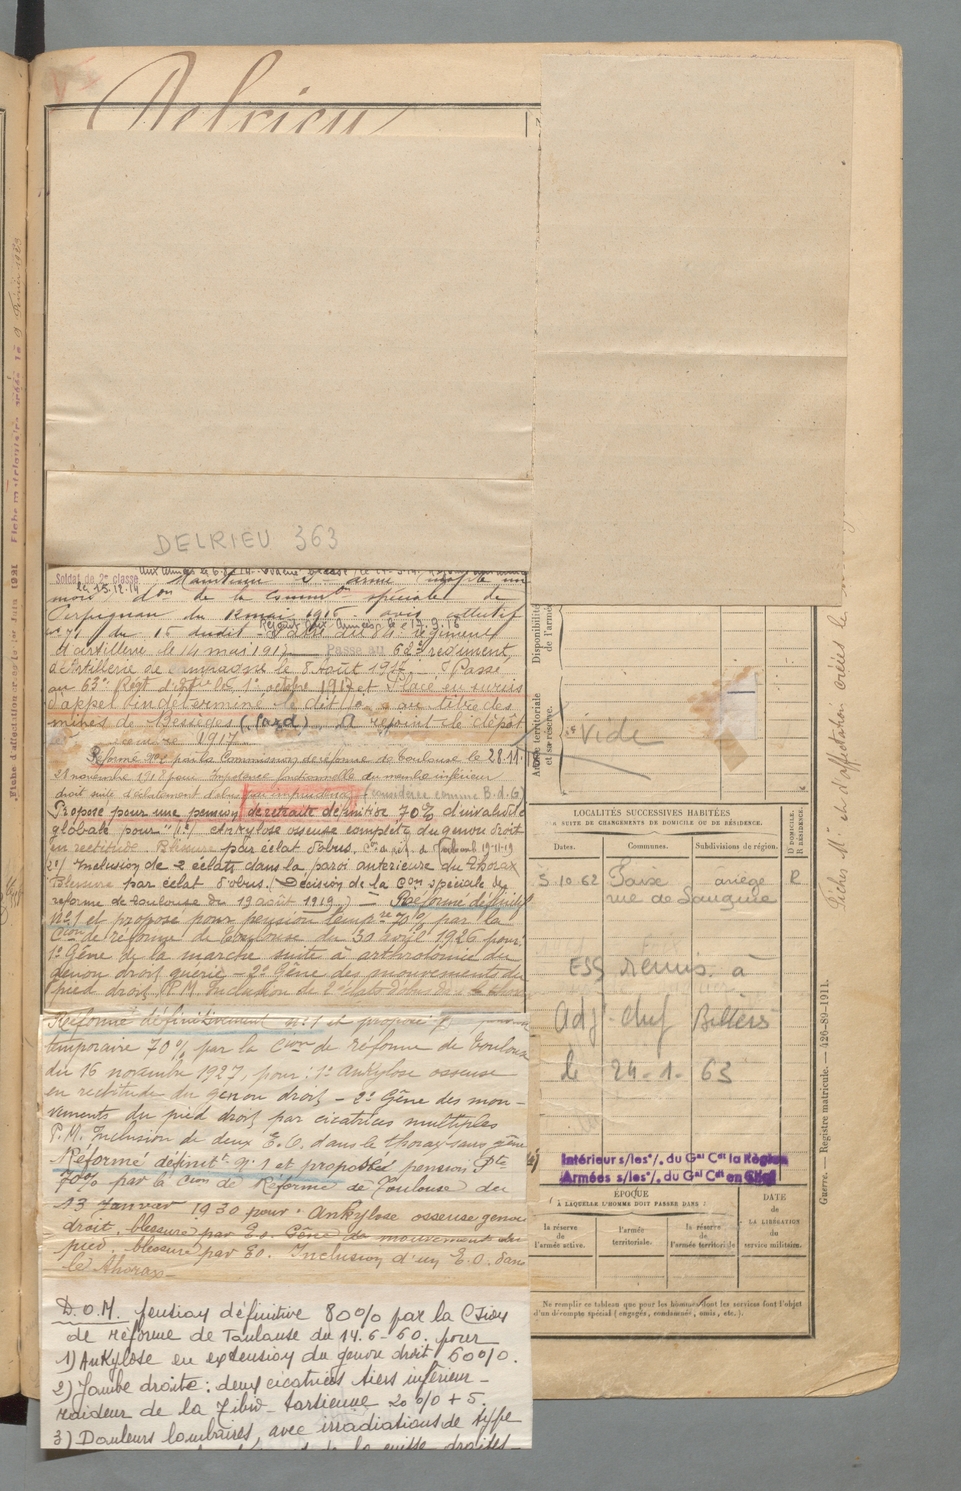 Delrieu
DELRIEU 363
Soldat de 2e classe
aux armées le 6.8.14
le 15.12.14 Maintenu armé
mois don de la Common spéciale de
Perpignan du 12 mai 1915 - avis collectif
du 15 dudit - Passé au 84e régiment
d'artillerie le 14 mai 1917 Passé au 62e régiment
d'Artillerie de campagne le 8 août 1917 Passé
au 63e Régt d'Artie le 1er octobre 1917 et Placé en sursis
d'appel indéterminé le dit jour au titre des
mines de Bessèges (Gard). A rejoint le dépôt
1917
Réformé n°2 par la Commission de réforme de Toulouse le 28.11.
21 novembre 1918 pour Impotence fonctionnelle du membre inférieur
droit suite d'éclatement d'obus par imprudence (considéré comme B.d.G)
Proposé pour une pension de retraite définitive 70% d'invalidité
globale pour "1°/ Ankylose osseuse complète du genou droit
en rectitude. Blessure par éclat d'obus. Toulouse 19-11-19
2°/ Inclusion de 2 éclats dans la paroi antérieure du Thorax
Blessure par éclat d'obus. (Décision de la Con spéciale de
réforme de Toulouse du 19 août 1919) - Réformé définitif
n°1 et proposé pour pension tempre 70% par la
Cion de réforme de Toulouse du 30 avril 1926 pour:
1° Gêne de la marche suite à arthrotomie du
genou droit guérie - 2° Gêne des mouvements du
pied droit, P.M. Inclusion de 2 éclats d'obus
Réformé définitivement n°1 et proposé pension
temporaire 70% par la Cion de réforme de Toulouse
du 16 novembre 1927, pour: 1° Ankylose osseuse
en rectitude du genou droit - 2° Gêne des mou-
vements du pied droit par cicatrices multiples
P.M. Inclusion de deux E.O. dans le thorax sans gêne
Réformé définitt n°1 et proposé pension Pte
70% par la Cion de Réforme de Toulouse du
13 Janvier 1930 pour: Ankylose osseuse genou
droit, blessure par E.O. Gêne des mouvements du
pied, blessure par EO. Inclusion d'un E.O. dans
le thorax -
D.O.M. pension définitive 80% par la Ction
de Réforme de Toulouse du 14.6-60. pour
1) Ankylose en extension du genou droit 60%.
2) Jambe droite: deux cicatrices tiers inférieur -
Raideur de la Tibio-tarsienne 20% + 5
3) Douleurs lombaires, avec irradiations de type
de la cuisse droite
Disponibilité
de l'armée
Armée territoriale
et sa réserve.
Vide
LOCALITÉS SUCCESSIVES HABITÉES
A SUITE DE CHANGEMENTS DE DOMICILE OU DE RÉSIDENCE.
D DOMICILE.
R RÉSIDENCE.
Dates.
Communes.
Subdivisions de région.
5.10.62 Foix ariège R
ESS remis à
Adjt-Chef
le 24-1-63
Intérieur s/lest/. du Gal Cdt la Région
Armées s/lest/. du Gal Cdt en Chef
ÉPOQUE
À LAQUELLE L'HOMME DOIT PASSER DANS :
DATE
DE
LA LIBÉRATION
du
service militaire.
la réserve
de
l'armée active.
l'armée
territoriale.
la réserve
de
l'armée territoriale
Ne remplir ce tableau que pour les hommes dont les services font l'objet
d'un décompte spécial (engagés, condamnés, omis, etc.).
Guerre. — Registre matricule. — 426-89-1911.